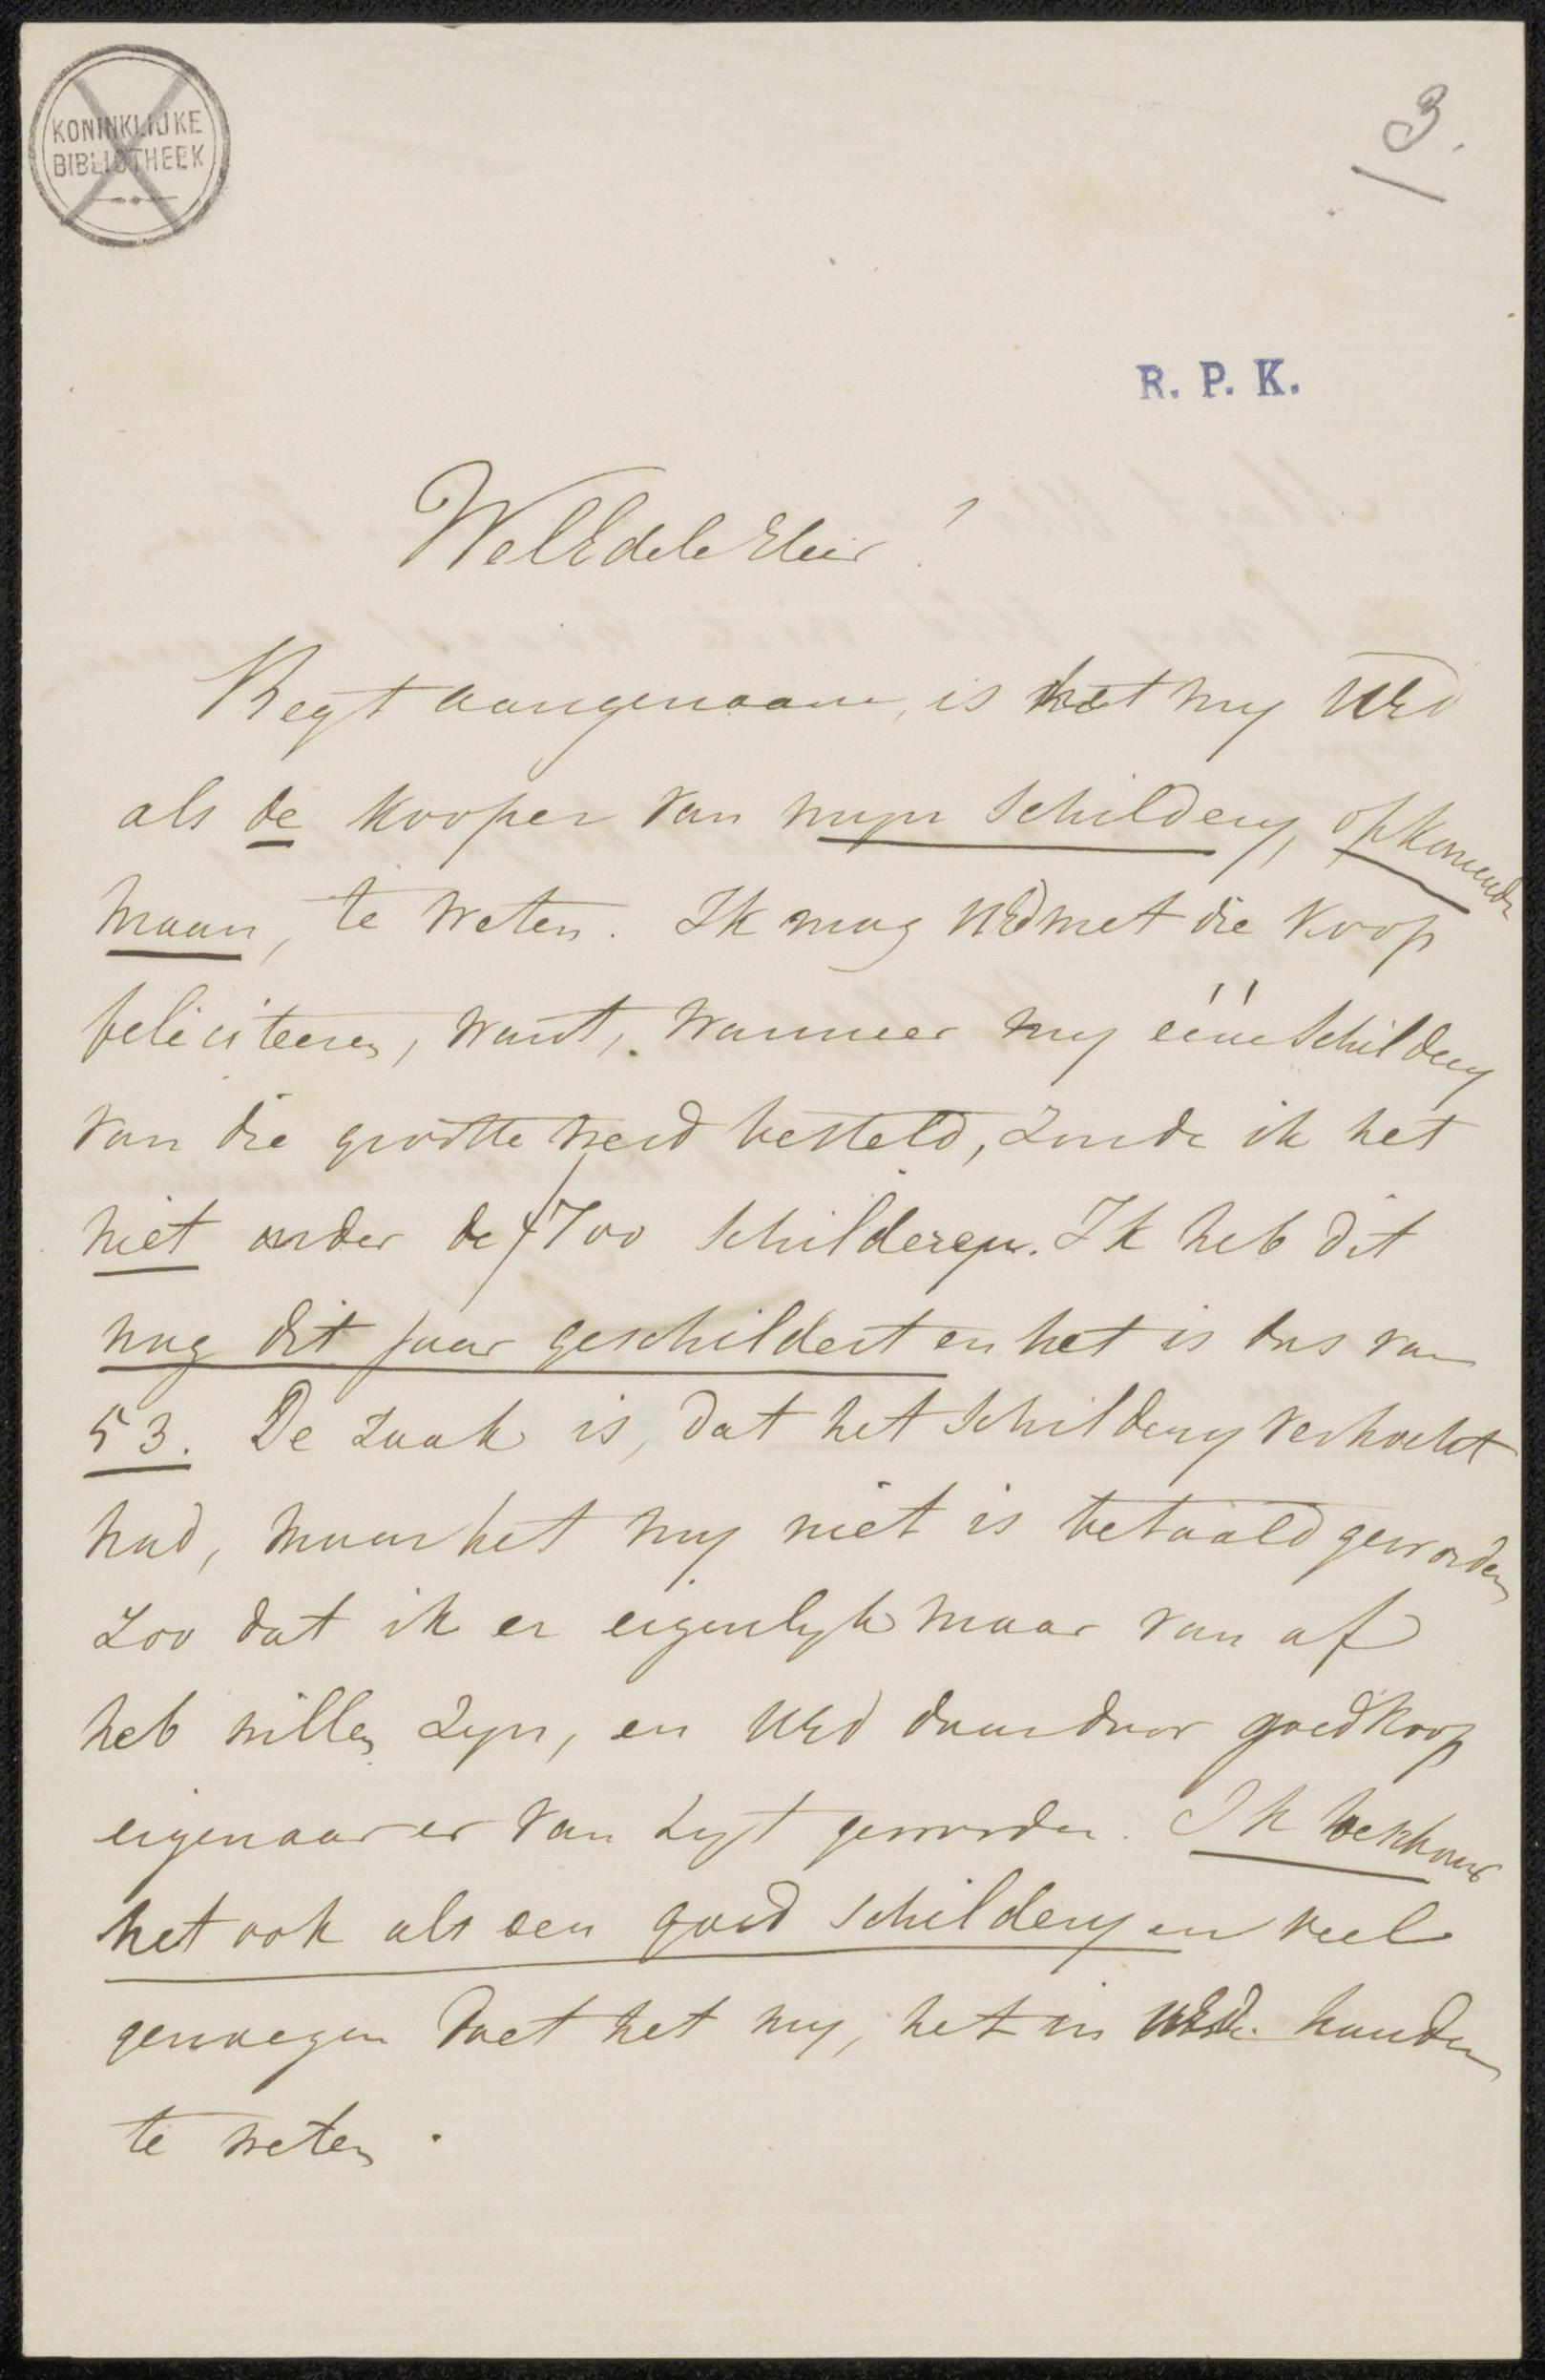 KONINKLIJKE
BIBLIOTHEEK
3.
R. P. K.
WelEdele Heer!
Regt aangenaam, is het my UEd
als de kooper van myn schildery, opkomende
maan, te weten. Ik mag UEd met die koop
feliciteeren, want, wanneer my één schildery
van die grootte werd besteld, zoude ik het
niet onder de ƒ700 schilderen. Ik heb dit
nog dit jaar geschildert en het is dus van
53. De zaak is, dat het schildery verkocht
had, maar het my niet is betaald geworden
zoo dat ik er eigenlyk maar van af
heb willen zyn, en UEd daardoor goedkoop
eigenaar er van zyt geworden. Ik beschouw
het ook als een goed schildery en veel
genoegen doet het my, het in UEds. handen
te weten.